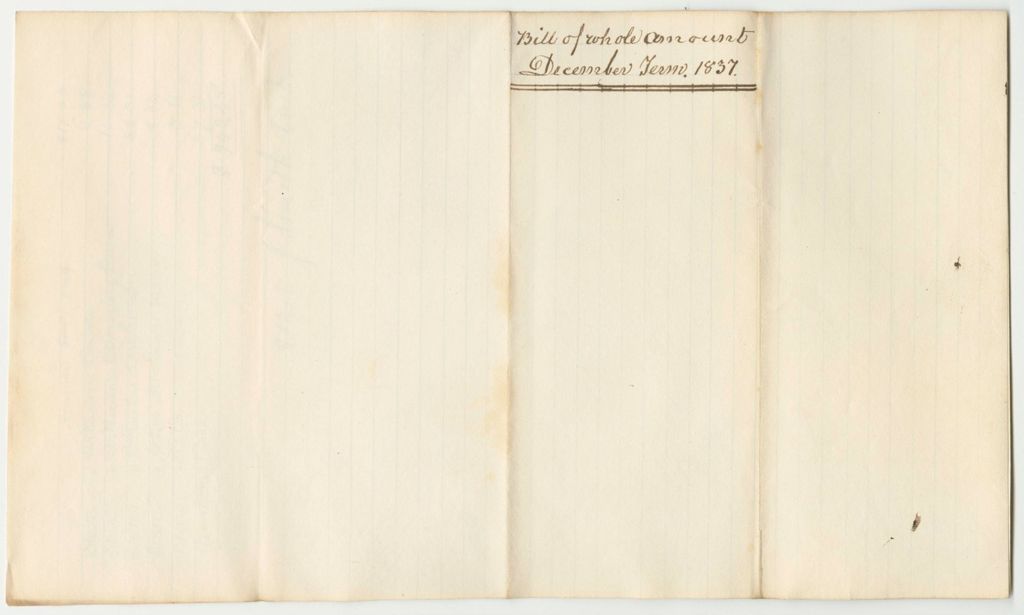 Bill of whole amount
December Term. 1837.